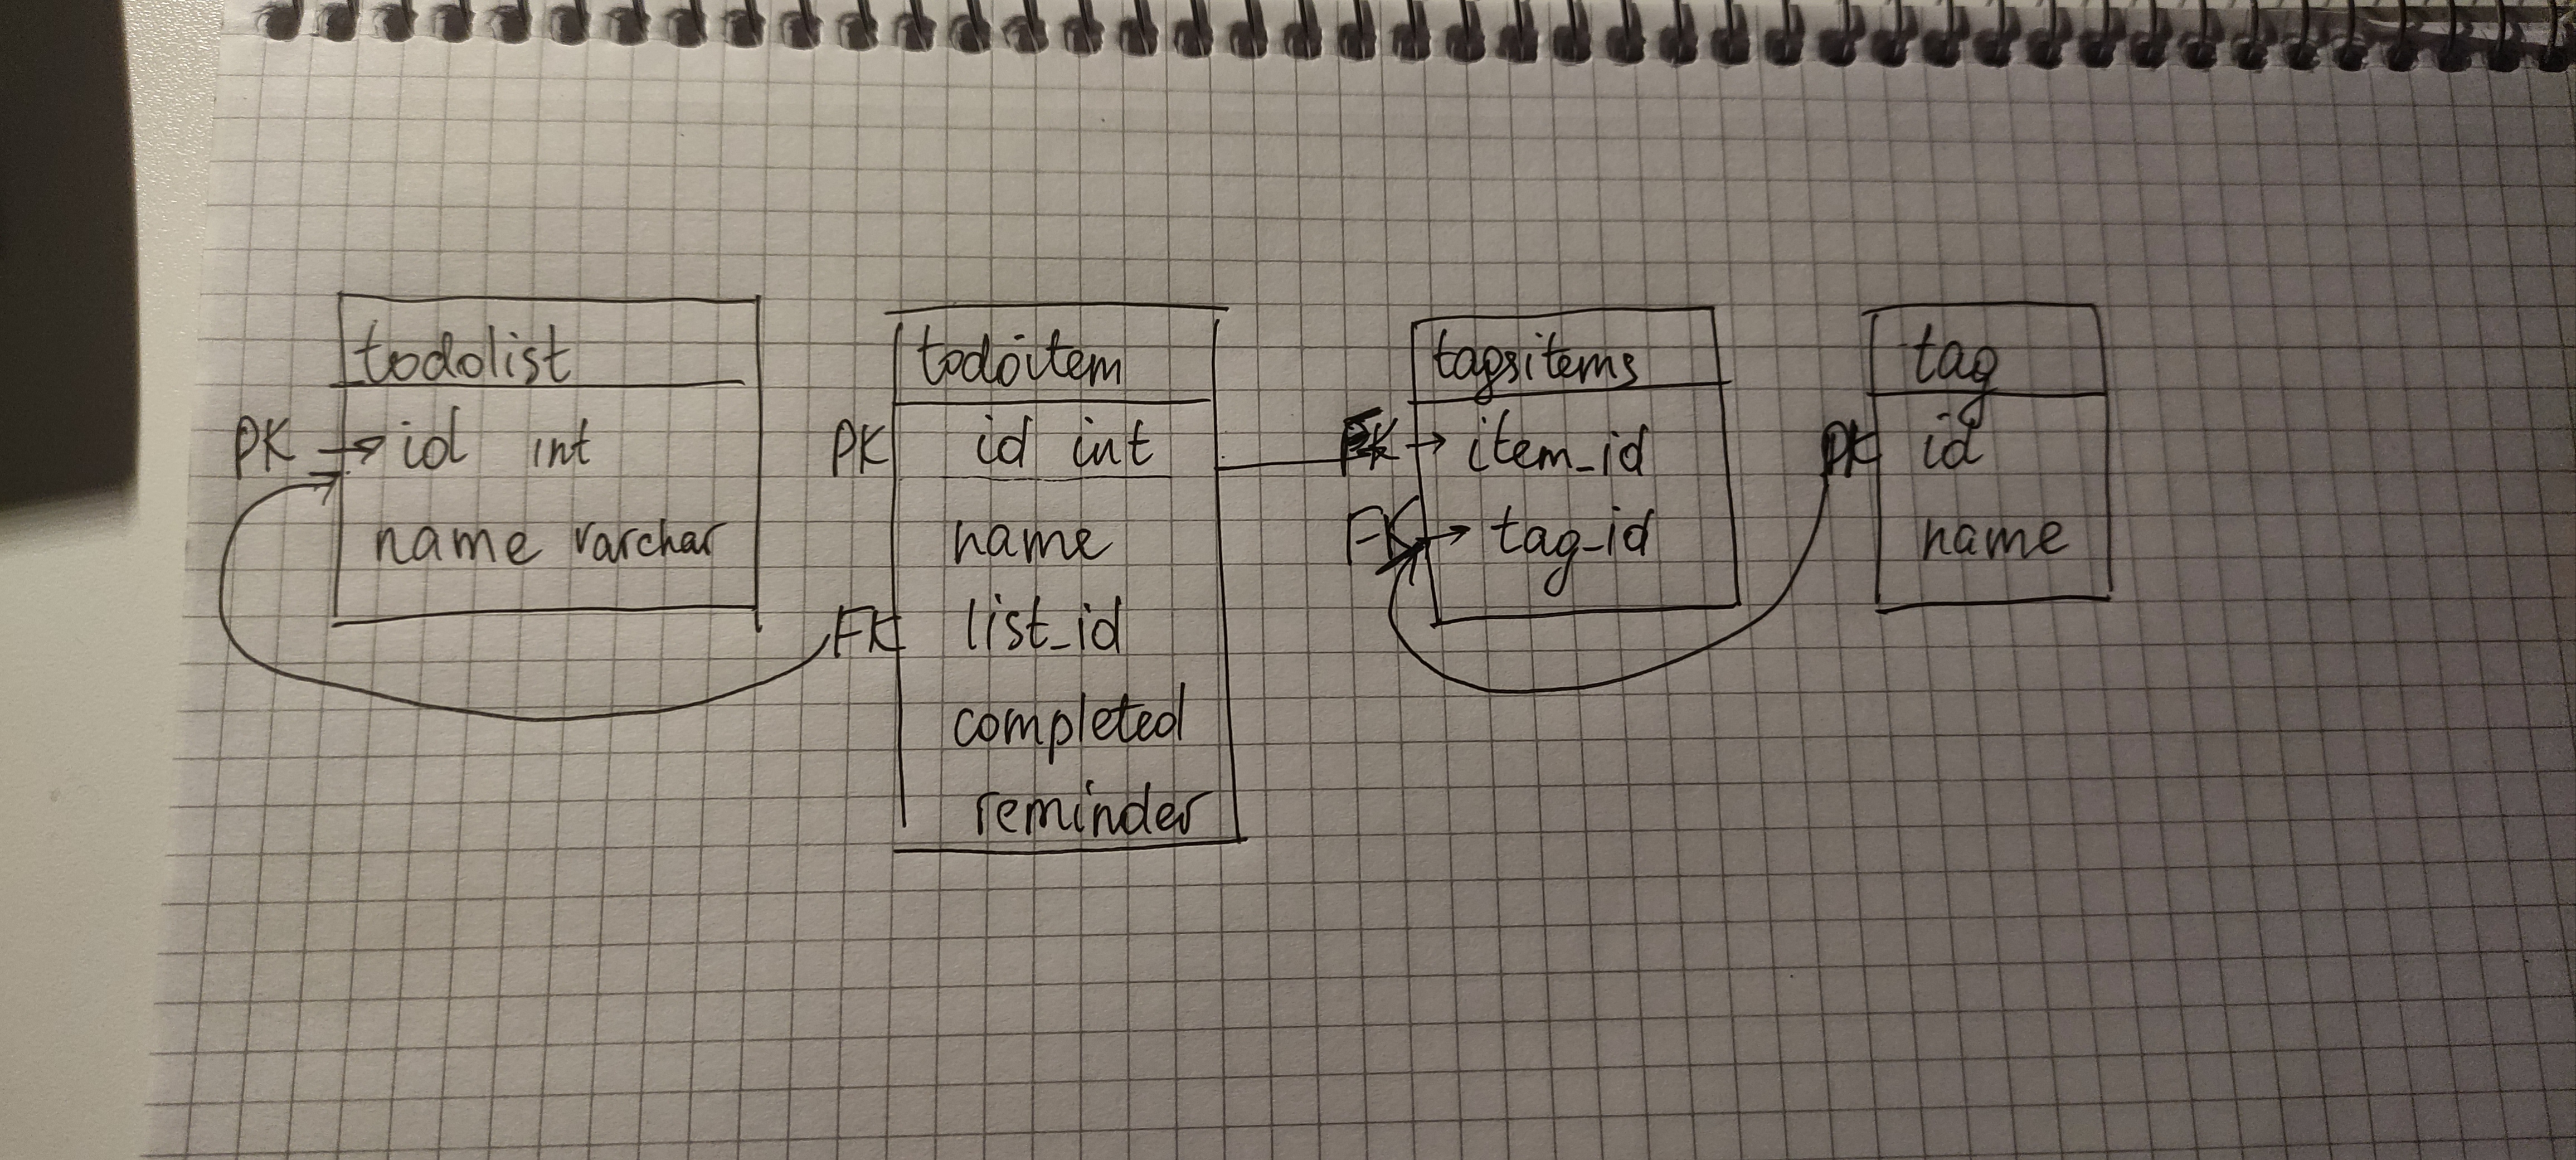 todolist
PK → id int
name varchar
todoitem
PK id int
name
FK list_id
completed
reminder
tagsitems
FK → item_id
FK → tag_id
tag
PK id
name